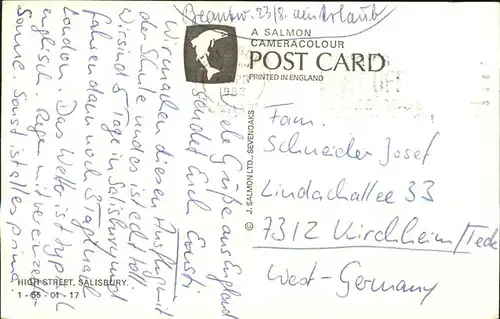 Beantw. 23/8. ein Urlaub
A SALMON
CAMERACOLOUR
POST CARD
PRINTED IN ENGLAND
© J. SALMON LTD., SEVENOAKS
Viele Grüße aus England
sendet Euch Ernst!
Wir machen diesen Ausflug mit
der Schule und es ist echt toll.
Wir sind 5 Tage in Salisbury und
fahren dann noch 3 Tage nach
London. Das Wetter ist typisch
englisch. Regen mit vereinzelt
Sonne. Sonst ist alles prima
Fam.
Schneider Josef
Lindachallee 33
7312 Kirchheim/Teck
West-Germany
HIGH STREET, SALISBURY.
1-55-01-17